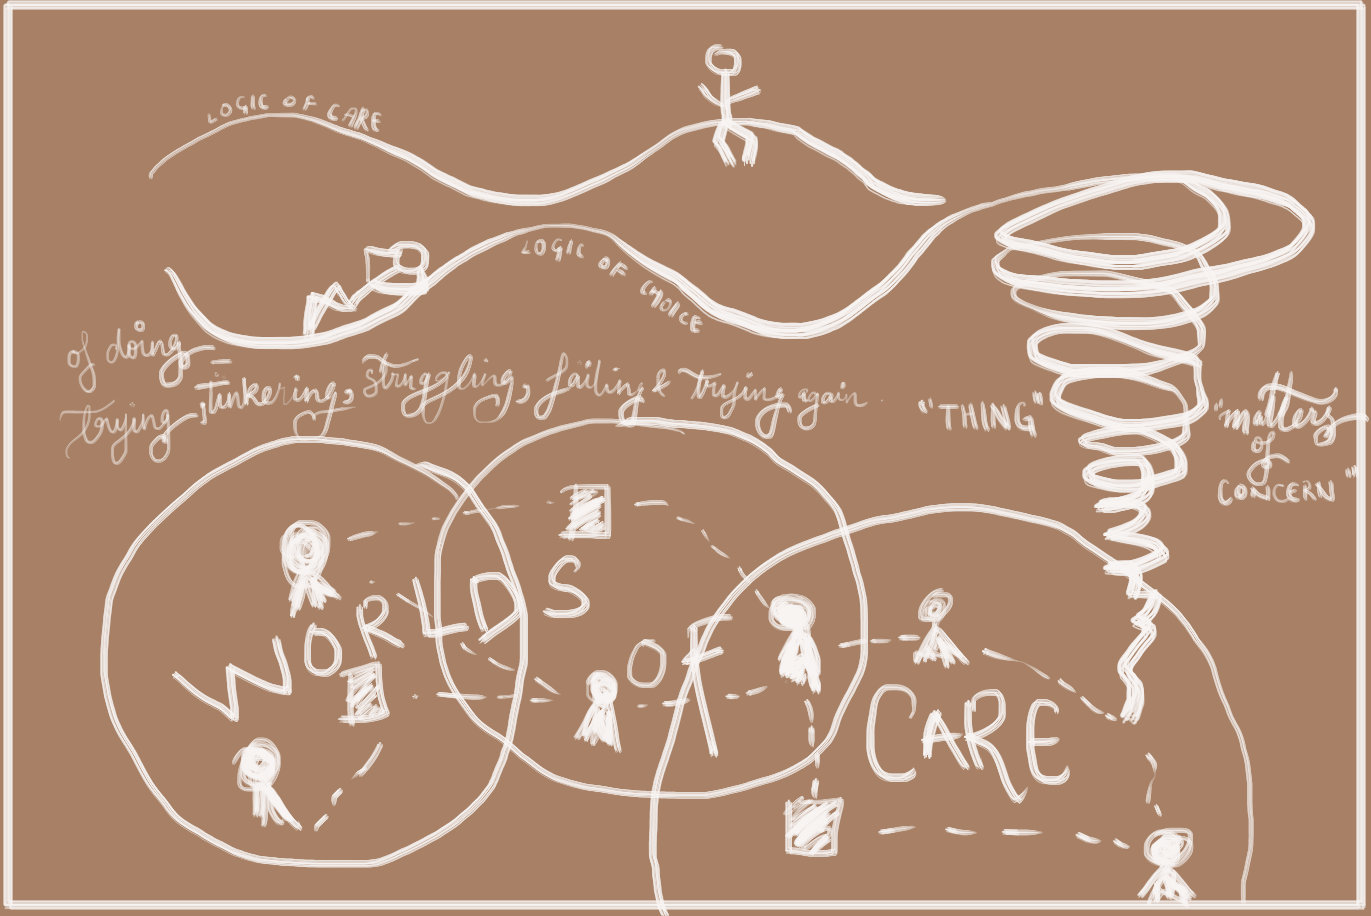 LOGIC OF CARE
LOGIC OF CHOICE
of doing -
trying -, tinkering, struggling, failing & trying again.
"THING"
"matters
of
CONCERN"
WORLDS
OF
CARE